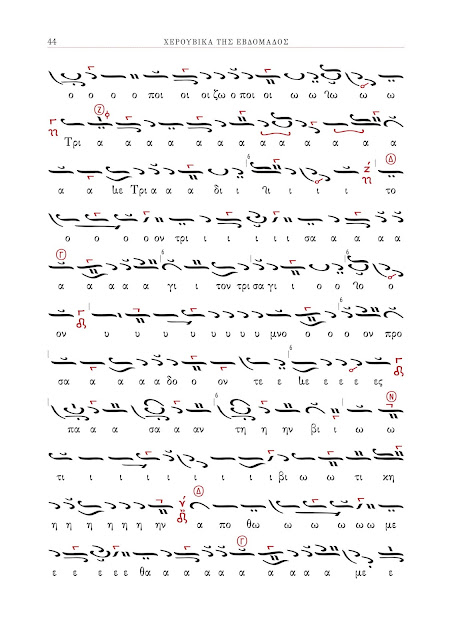 44 ΧΕΡΟΥΒΙΚΑ ΤΗΣ ΕΒΔΟΜΑΔΟΣ
ο ο ο ο ποι οι οι ζω ο ποι οι ω ω ω ω ω
Τρι α α α α α α α α α α α α
α α Τρι α α α δι ι ι ι ι το
ο ο ο ο ον τρι ι ι ι ι ι σα α α α α
α α α α α γι ι τον τρι σα γι ι ο ο ο
ον υ υ υ υ υ υ υ υ μνο ο ο ο ον προ
σα α α α α δο ο ον τε ε ε ε ε ες
πα α α σα α αν τη η ην βι ι ω ω
τι ι ι ι ι ι ι ι ι βι ω ω τι κη
η η η η η η ην α πο θω ω ω ω ω ω με
ε ε ε ε ε θα α α α α α α α α με ε